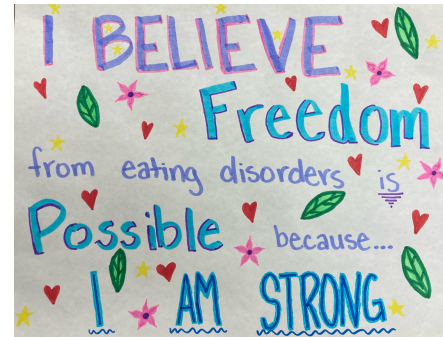 I BELIEVE
Freedom
from eating disorders is
Possible because...
I AM STRONG